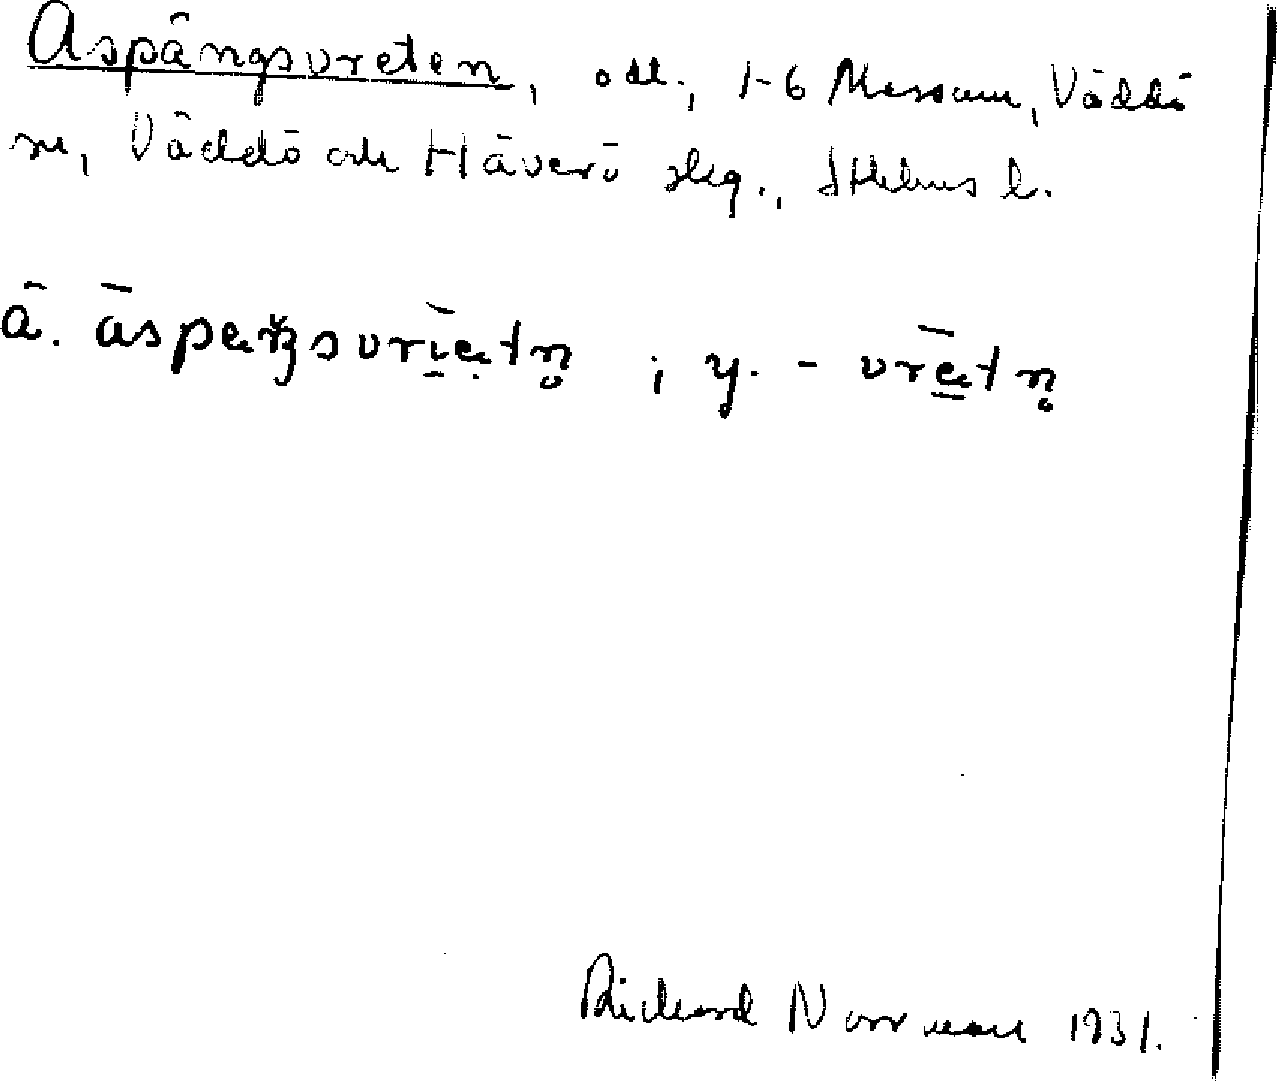 Aspängsvreten, odl., 1-6 Massum, Väddö
sn, Väddö och Häverö skg., Sthlms l.
ä. āspæŋsvrīætn̥ ; y. - vrǣtn̥
Richard Norrman 1931.